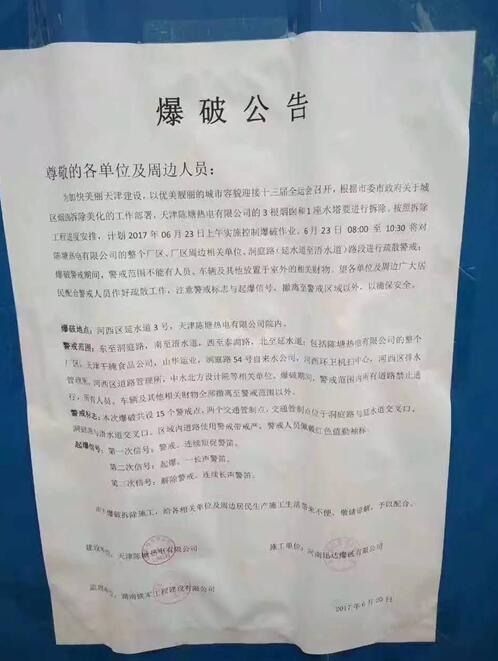 爆破公告
尊敬的各单位及周边人员：
为加快美丽天津建设，以优美靓丽的城市容貌迎接十三届全运会召开，根据市委市政府关于城
区烟囱拆除美化的工作部署，天津陈塘热电有限公司的3根烟囱和1座水塔要进行拆除。按照拆除
工程进度安排，计划2017年06月23日上午实施控制爆破作业。6月23日08:00至10:30将对
陈塘热电有限公司的整个厂区、厂区周边相关单位、洞庭路（延水道至浯水道）路段进行疏散警戒；
爆破警戒期间，警戒范围不能有人员、车辆及其他放置于室外的相关财物。望各单位及周边广大居
民配合警戒人员作好疏散工作，注意警戒标志与起爆信号，撤离至警戒区域以外，以确保安全。
爆破地点：河西区延水道3号，天津陈塘热电有限公司院内。
警戒范围：东至洞庭路，南至浯水道，西至泰湖路，北至延水道；包括陈塘热电有限公司的整个
厂区，天津干腌食品公司，山华运业，洞庭路54号自来水公司，河西环卫机扫中心，河西区排水
管理所，河西区道路管理所，中水北方设计院等相关单位。爆破期间，警戒范围内所有道路禁止通
行，所有人员、车辆及其他相关财物全部撤离至警戒范围以外。
警戒标志：本次爆破共设15个警戒点，两个交通管制点，交通管制点位于洞庭路与延水道交叉口、
洞庭路与浯水道交叉口。区域内道路使用警戒带戒严，警戒人员佩戴红色值勤袖标。
起爆信号：第一次信号：警戒，连续短促警笛。
第二次信号：起爆，一长声警笛。
第三次信号：解除警戒，连续长声警笛。
由于爆破拆除施工，给各相关单位及周边居民生产施工生活带来不便，敬请谅解，予以配合。
建设单位：天津陈塘热电有限公司
施工单位：河南迅达爆破有限公司
监理单位：湖南铁军工程建设有限公司
2017年6月20日